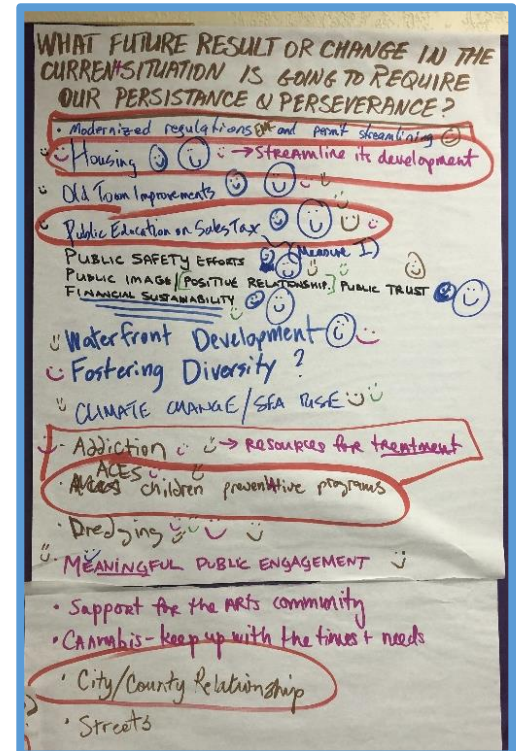 WHAT FUTURE RESULT OR CHANGE IN THE
CURRENT SITUATION IS GOING TO REQUIRE
OUR PERSISTANCE & PERSEVERANCE?
• Modernized regulations and permit streamlining
Housing → Streamline its development
Old Town Improvements
Public Education on Sales Tax
(Measure I)
PUBLIC SAFETY EFFORTS
PUBLIC IMAGE/[POSITIVE RELATIONSHIP] PUBLIC TRUST
FINANCIAL SUSTAINABILITY
Waterfront Development
Fostering Diversity ?
CLIMATE CHANGE/SEA RISE
Addiction → Resources for treatment
ACES
• children preventive programs
• Dredging
• MEANINGFUL PUBLIC ENGAGEMENT
• Support for the ARts community
• CAnnabis - keep up with the times + needs
• City/County Relationship
• Streets